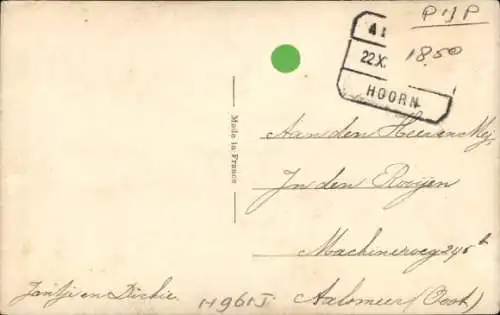 PIJP
18.50
4
22X.
HOORN
Made in France
Aan den Heer en Mej.
In den Rooijen
Machineweg 245 b
Aalsmeer (Oost)
Jantje en Dickie.
H961I